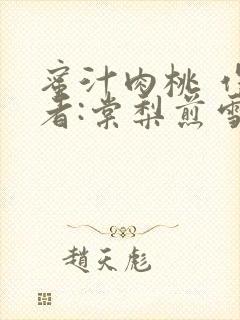 蜜汁肉桃 作
者:棠梨煎雪
趙天彪